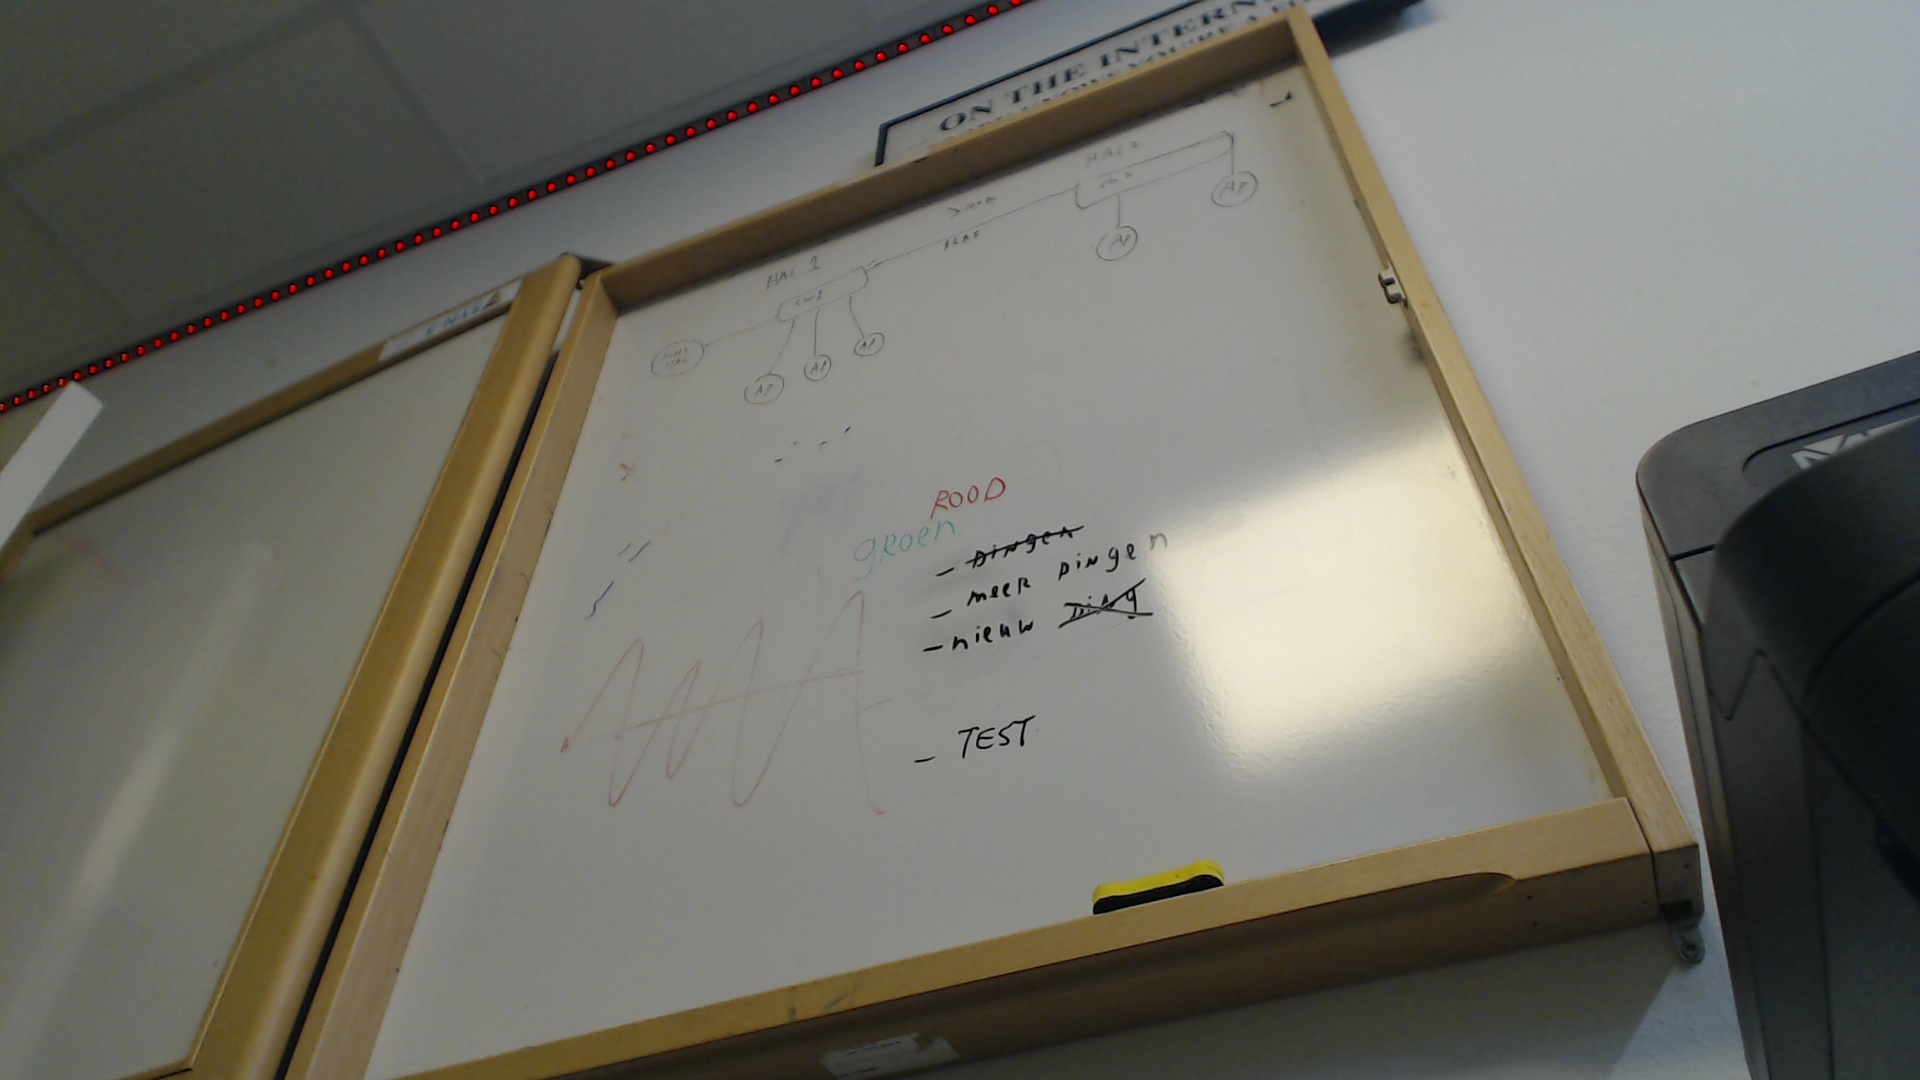 ON THE INTERN
HAL 2
SW 2
AP
AP
HAL 1
SW1
AP
AP
AP
ROOD
groen
- Dingen
- meer Dingen
- nieuw Ding
- TEST